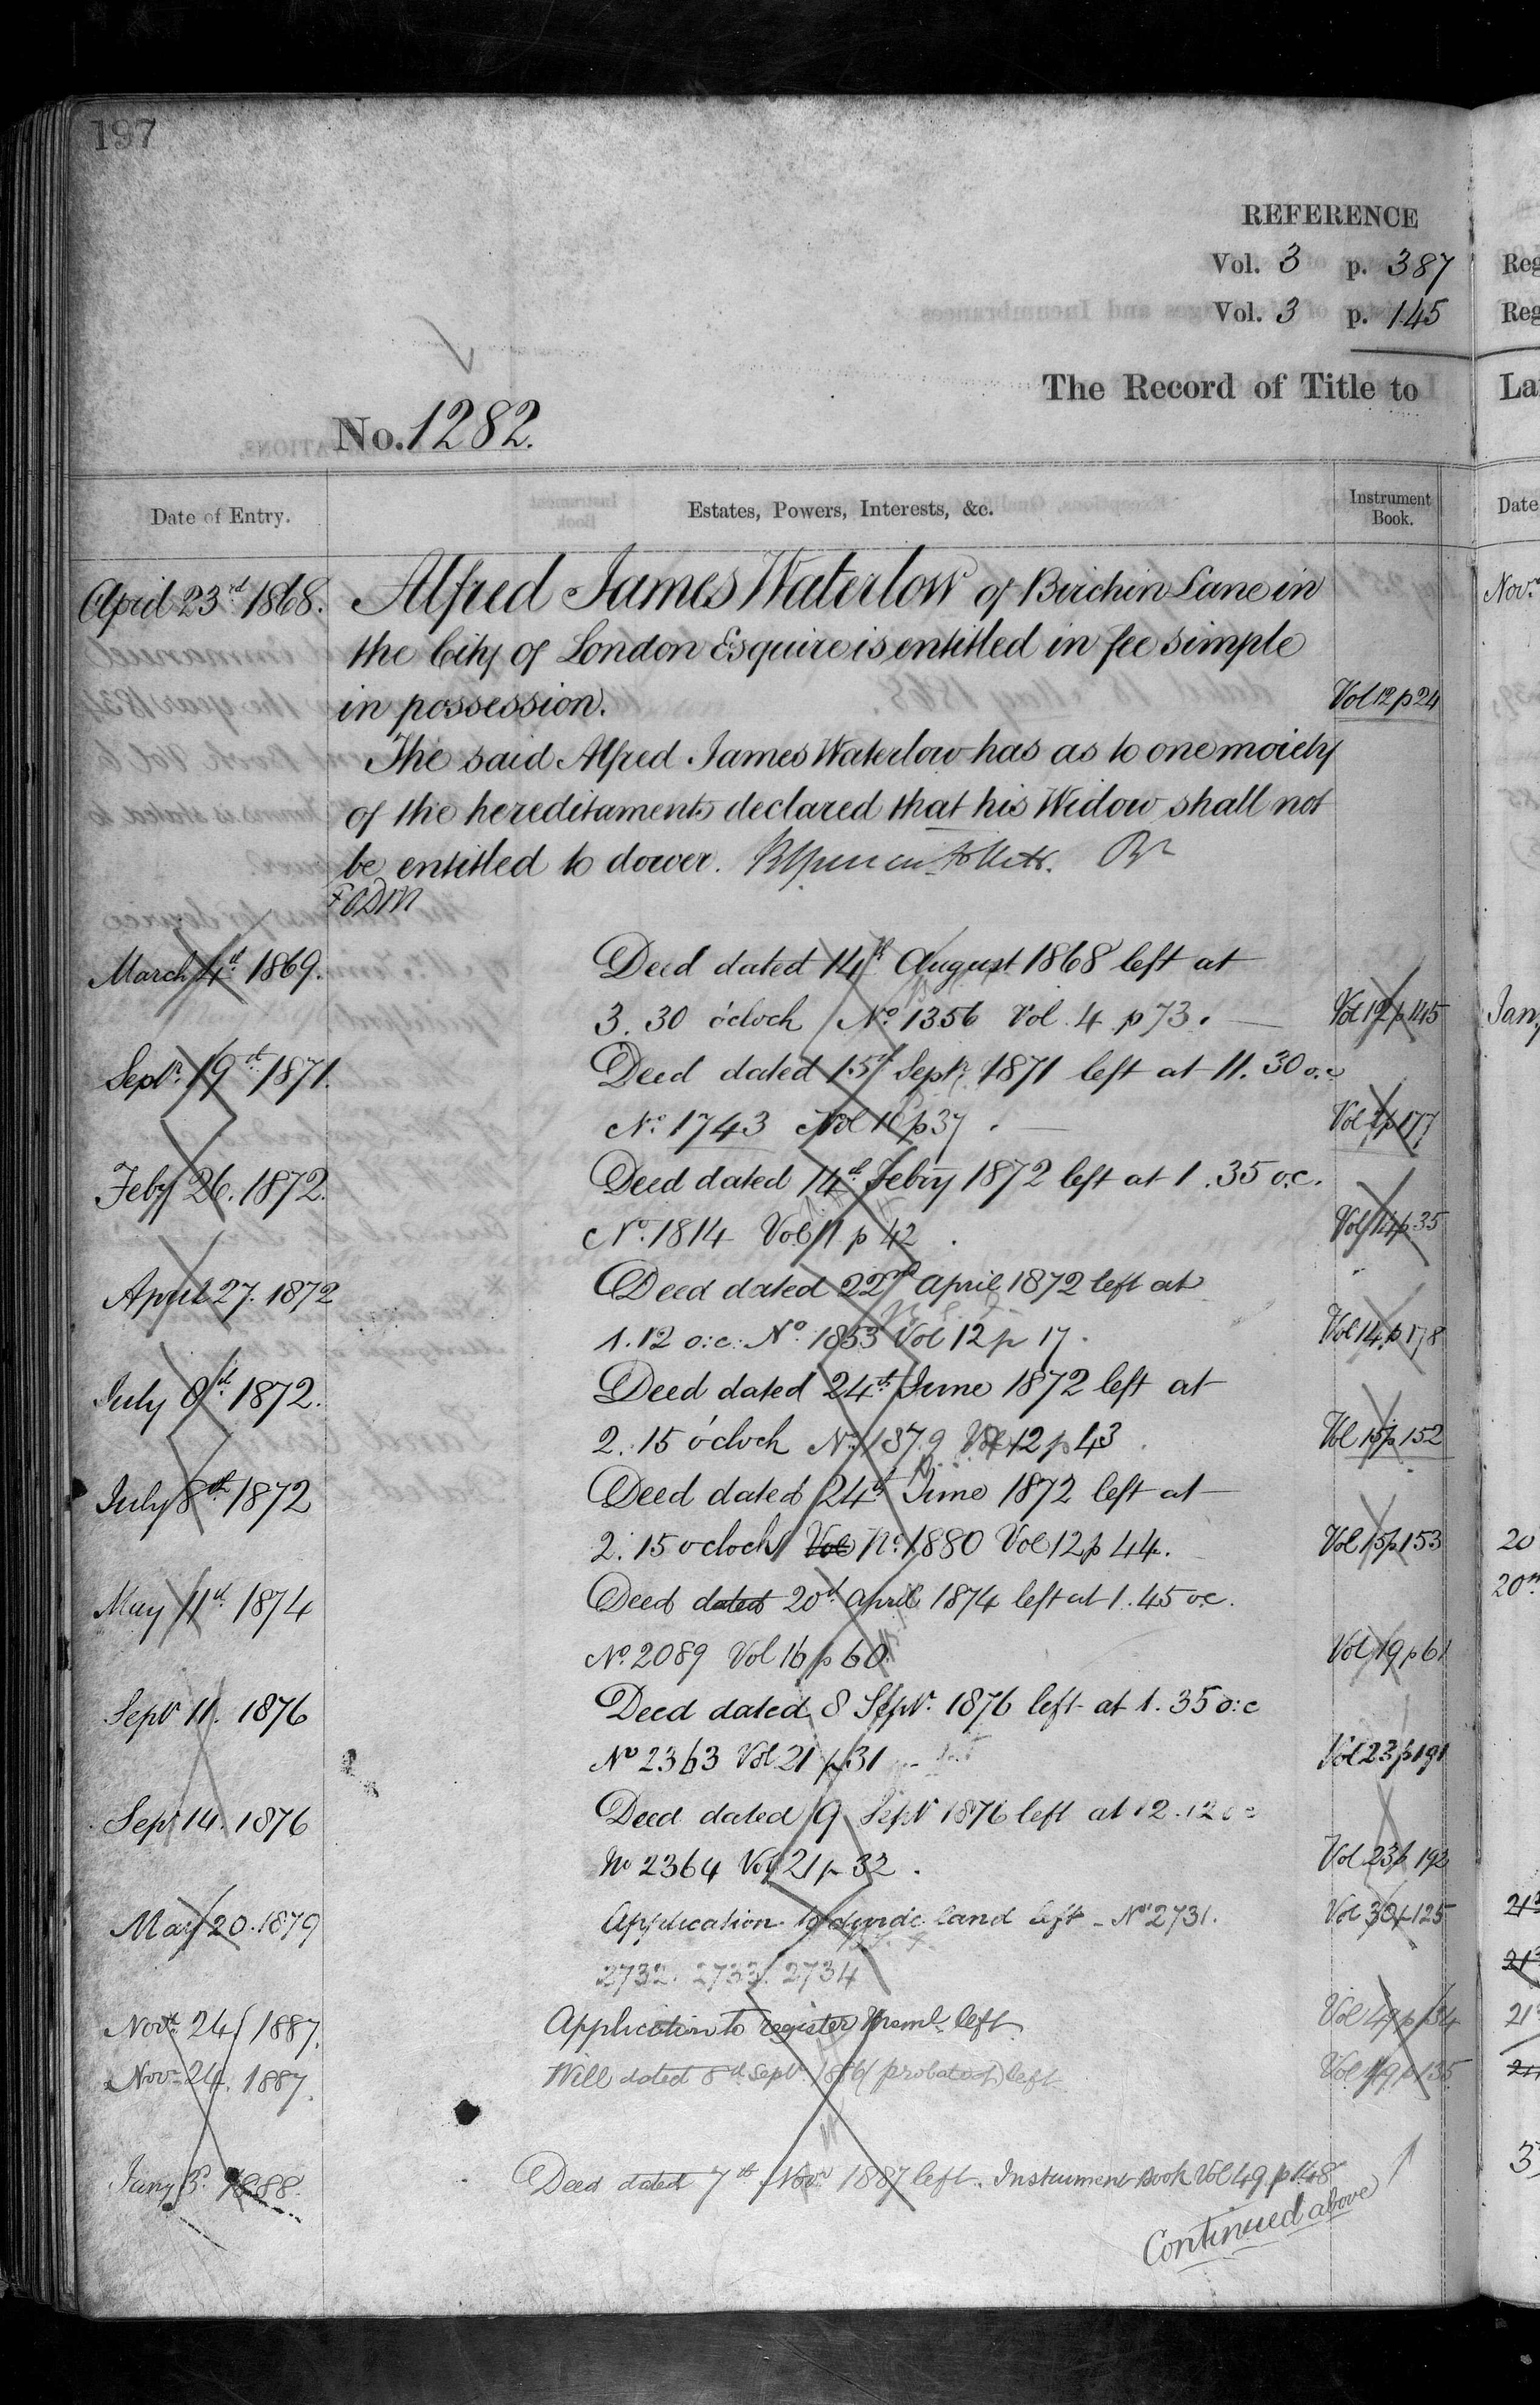 197
REFERENCE
Vol. 3 p. 387
Vol. 3 p. 145
The Record of Title to
No. 1282.
Date of Entry. Estates, Powers, Interests, &c. Instrument Book.
April 23rd 1868. Alfred James Waterlow of Birchin Lane in
the City of London Esquire is entitled in fee simple
in possession. Vol 12 p 24
The said Alfred James Waterlow has as to one moiety
of the hereditaments declared that his Widow shall not
be entitled to dower.
March 4th 1869. Deed dated 14th August 1868 left at
3.30 o'clock No. 1356 Vol. 4 p 73. Vol 12 p 145
Septr. 19th 1871. Deed dated 15th Septr. 1871 left at 11.30 o.c
No. 1743 Vol 10 p 37.
Feby 26. 1872. Deed dated 14th Febry 1872 left at 1.35 o.c.
No. 1814 Vol 11 p 42. Vol 14 p 35
April 27. 1872 Deed dated 22nd April 1872 left at
1.12 o:c: No. 1853 Vol 12 p 17. Vol 14 p 178
July 8th 1872. Deed dated 24th June 1872 left at
2.15 o'clock No. 1879 Vol 12 p 43 Vol 15 p 152
July 8th 1872 Deed dated 24th June 1872 left at
2.15 o'clock Vol No. 1880 Vol 12 p 44. Vol 15 p 153
May 11th 1874 Deed dated 20th April 1874 left at 1.45 o.c.
No. 2089 Vol 16 p 60. Vol 19 p 61
Septr 11. 1876 Deed dated 8 Septr. 1876 left at 1.35 o:c
No 2363 Vol 21 p 31 Vol 23 p 191
Sepr 14. 1876 Deed dated 9 Septr 1876 left at 12.12 o c
No 2364 Vol 21 p 32. Vol 23 p 192
May 20. 1879 Application to divide land left - No 2731. Vol 30 p 125
2732. 2733. 2734
Novr. 24 1887. Application to register left. Vol 49 p 134
Novr 24. 1887. Will dated 8th Septr. 1886 (probate of) left Vol 49 p 135
Jany 3. 1888. Deed dated 7th Novr 1887 left. Instrument Book Vol 49 p 148
Continued above